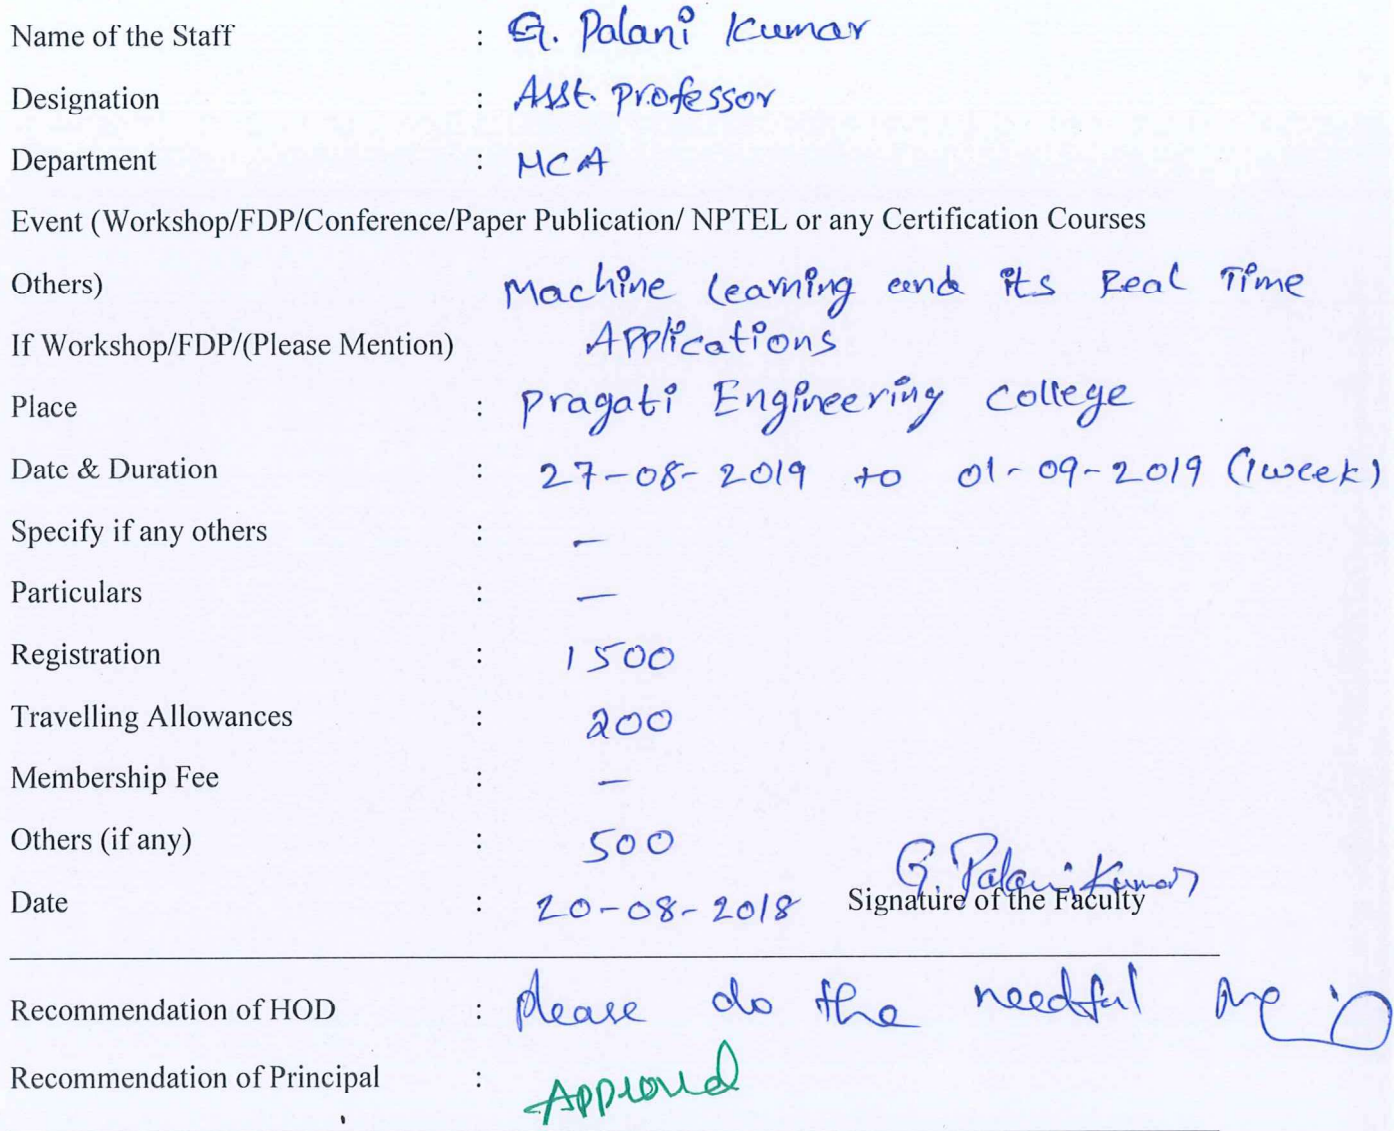 Name of the Staff : G. Palani Kumar
Designation : Asst. Professor
Department : MCA
Event (Workshop/FDP/Conference/Paper Publication/ NPTEL or any Certification Courses
Others) Machine Learning and its Real Time
If Workshop/FDP/(Please Mention) Applications
Place : Pragati Engineering College
Date & Duration : 27-08-2019 to 01-09-2019 (1week)
Specify if any others : —
Particulars : —
Registration : 1500
Travelling Allowances : 200
Membership Fee : —
Others (if any) : 500
G. Palani Kumar
Date : 20-08-2018 Signature of the Faculty
Recommendation of HOD : please do the needful
Recommendation of Principal : Approved